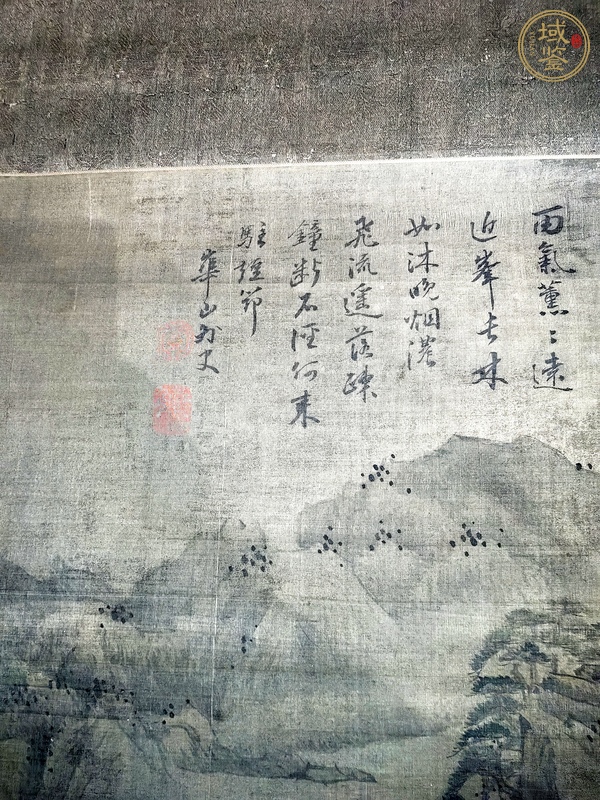 雨氣薰〻遠
近峯長林
如沐晚烟濃
飛流遥落疎
鐘斷石徑何來
駐短筇
華山外史
域鉴